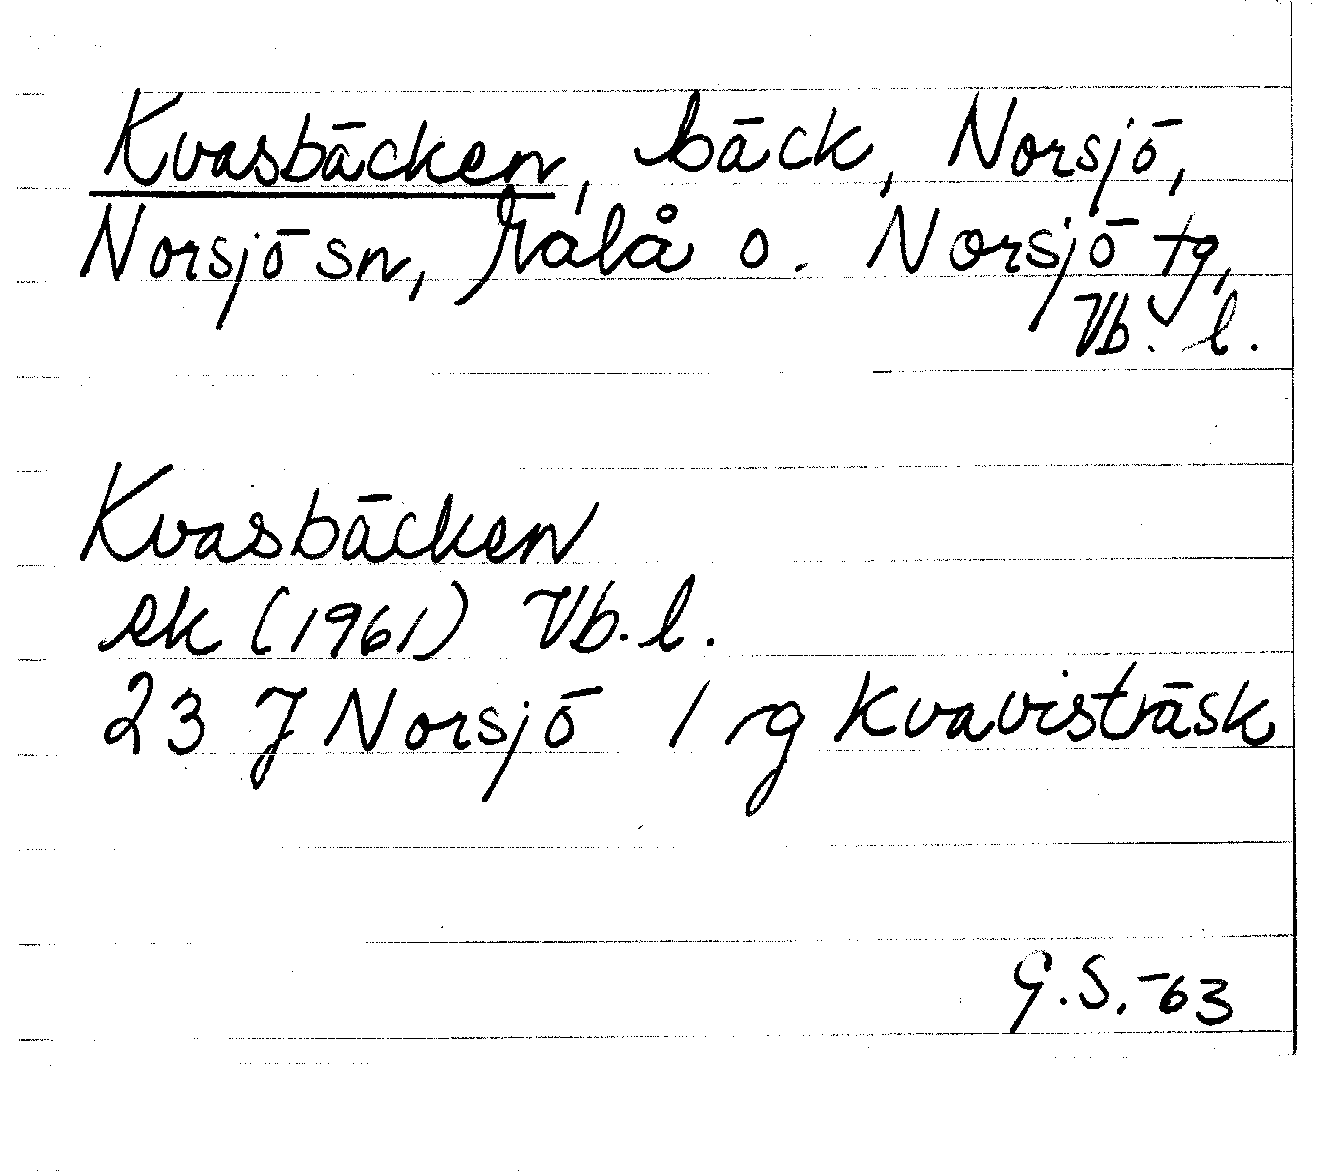 Kvasbäcken, bäck, Norsjö,
Norsjö sn, Malå o. Norsjö tg,
Vb. l.
Kvasbäcken
ek (1961) Vb. l.
23 J Norsjö / rg Kvavisträsk
G.S.-63